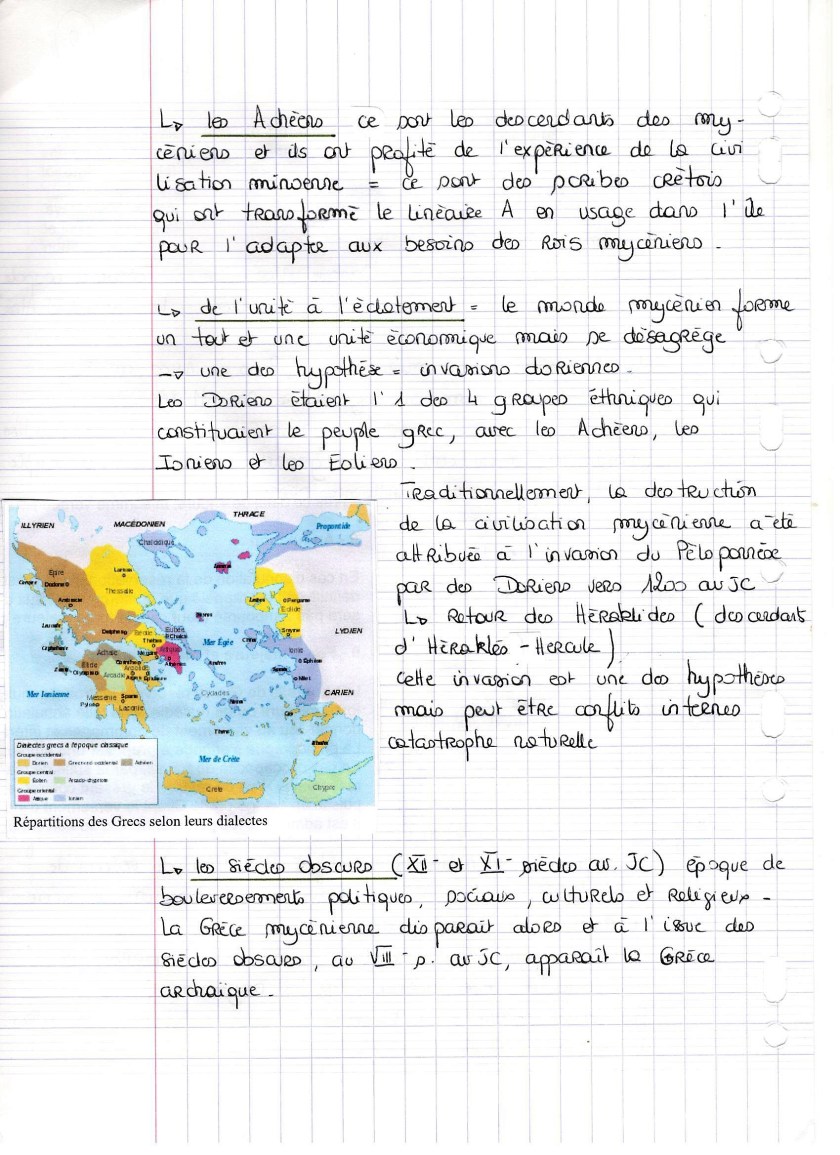 ↳ les Achéens ce sont les descendants des my-
céniens et ils ont profité de l'expérience de la civi
lisation minoenne = ce sont des scribes crétois
qui ont transformé le linéaire A en usage dans l'île
pour l'adapter aux besoins des rois mycéniens.
↳ de l'unité à l'éclatement = le monde mycénien forme
un tout et une unité économique mais se désagrège
→ une des hypothèse = invasions doriennes.
Les Doriens étaient l'1 des 4 groupes éthniques qui
constituaient le peuple grec, avec les Achéens, les
Ioniens et les Eoliens.
Traditionnellement, la destruction
de la civilisation mycénienne a été
attribuée à l'invasion du Péloponnèse
par des Doriens vers 1200 av JC
↳ Retour des Héraklides (descendant
d'Héraklès - Hercule)
cette invasion est une des hypothèses
mais peut être conflits internes
catastrophe naturelle
ILLYRIEN
MACÉDONIEN
THRACE
Propontide
Chalcidique
Epire
Dodone
Larissa
Thessalie
Lesbos
Pergame
Eolide
Smyrne
LYDIEN
Delphes
Béotie
Thèbes
Eubée
Chalcis
Skyros
Mer Égée
Chios
Achaïe
Élide
Olympie
Corinthe
Arcadie
Argolide
Argos
Épidaure
Attique
Athènes
Andros
Samos
Ionie
Éphèse
Milet
CARIEN
Mer Ionienne
Messénie
Pylos
Sparte
Laconie
Cyclades
Naxos
Cos
Théra
Rhodes
Mer de Crète
Crète
Chypre
Dialectes grecs à l'époque classique
Groupe occidental
Dorien Grec nord-occidental Achéen
Groupe central
Éolien Arcado-chypriote
Groupe oriental
Attique Ionien
Répartitions des Grecs selon leurs dialectes
↳ les siècles obscurs (XII- et XI- siècles av. JC) époque de
bouleversements politiques, sociaux, culturels et religieux.
La Grèce mycénienne disparait alors et à l'issue des
siècles obscurs, au VIII- s. av JC, apparaît la Grèce
archaïque.